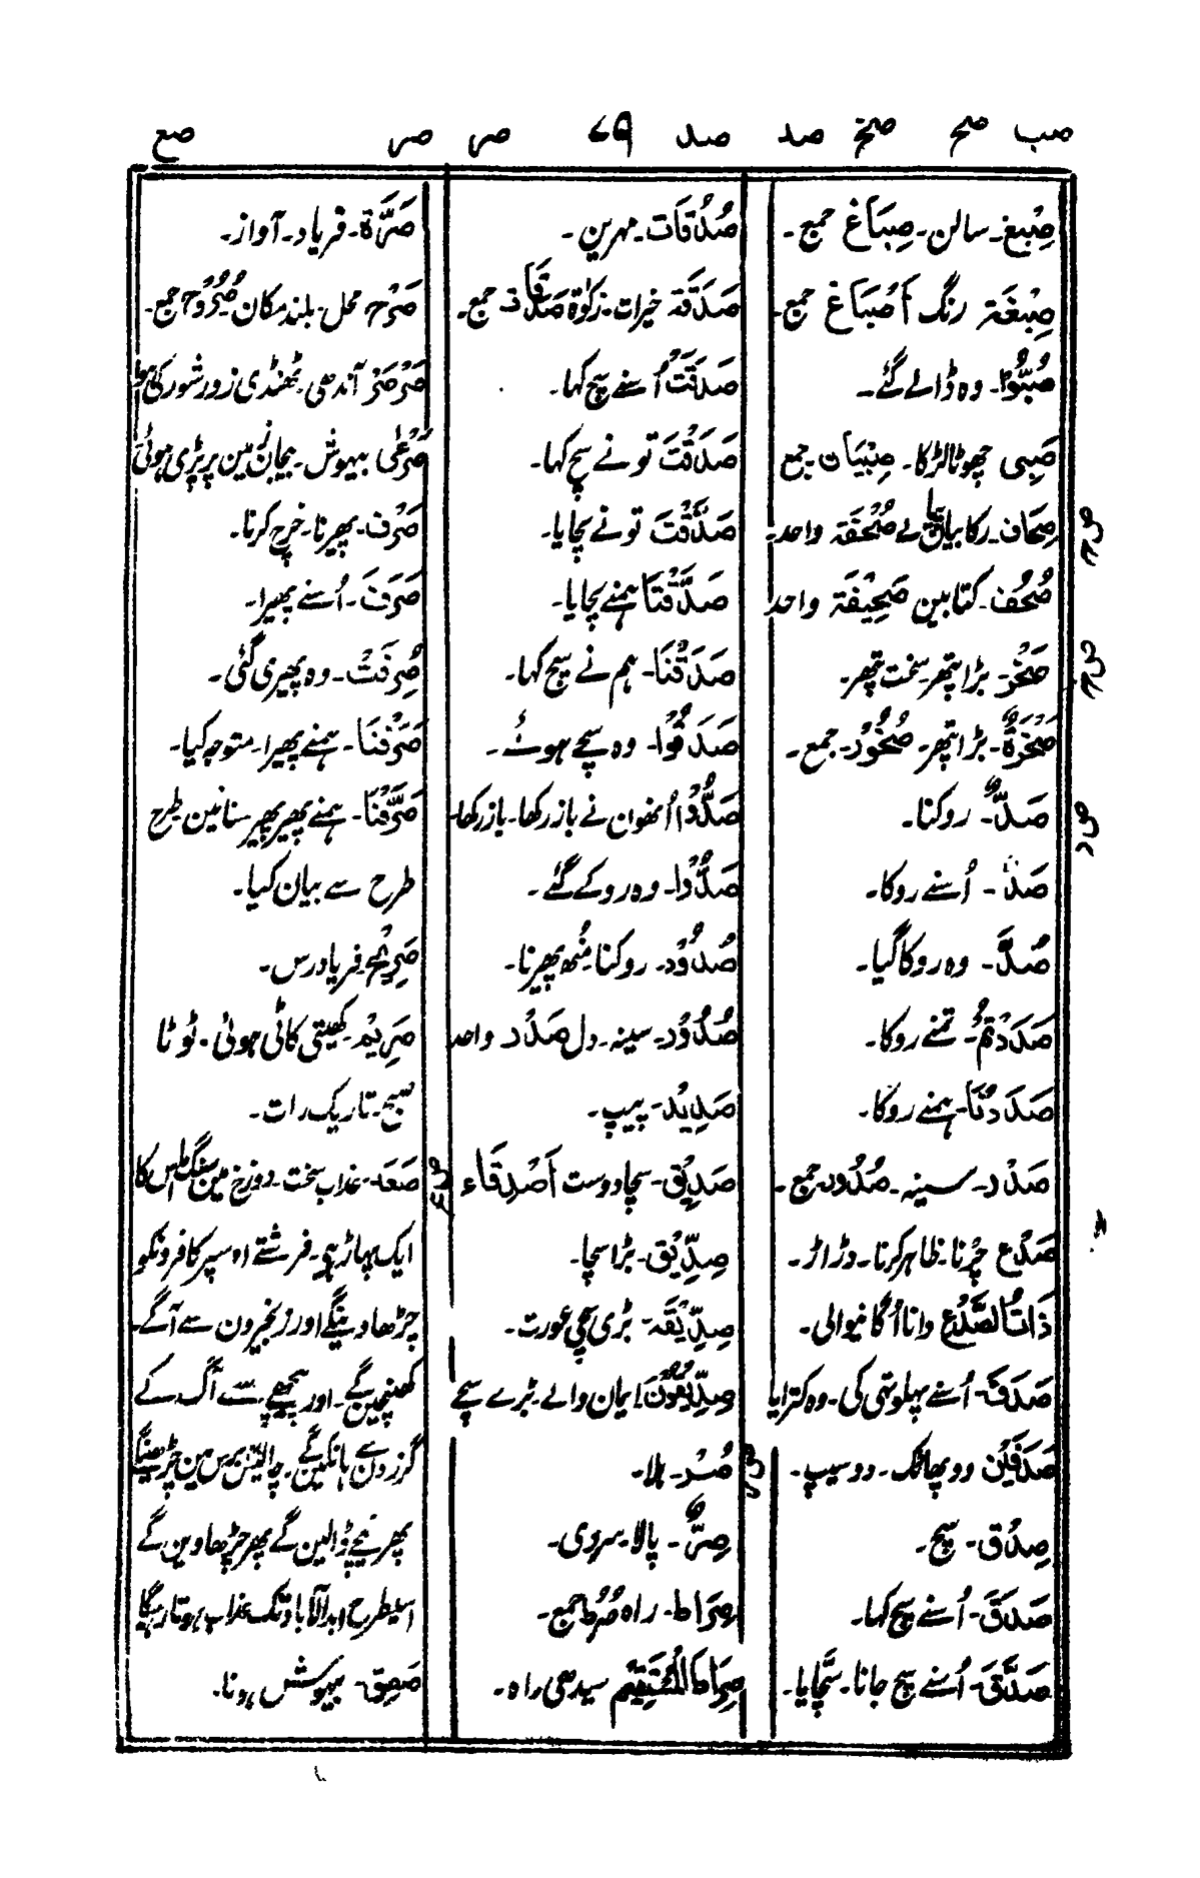 صب صح صخ صد صد ۷۹ صر صر صع
صِبْغ۔ سالن۔ صِبَاغ جمع۔
صِبْغَۃ رنگ اَصْبَاغ جمع۔
صُبُّوْا۔ وہ ڈالے گئے۔
صَبِی چھوٹا لڑکا۔ صِبْیَان جمع
صِحَاف۔ رکابیان صَحْفَۃ واحد۔
صح
صُحُف۔ کتابین صَحِیْفَۃ واحد
صَخْر۔ بڑا پتھر سخت پتھر۔
صخ
صَخْرَۃٌ۔ بڑا پتھر۔ صُخُوْر۔ جمع۔
صَدٌّ۔ روکنا۔
صد
صَدَّ۔ اُسنے روکا۔
صُدَّ۔ وہ روکا گیا۔
صَدَدْتُمْ۔ تمنے روکا۔
صَدَدْنَا۔ ہمنے روکا۔
صَدْر۔ سینہ۔ صُدُوْر جمع۔
صَدْع چرنا۔ ظاہر کرنا۔ دڑاڑ۔
ذَاتُ الصَّدْعِ دانا اُگانیوالی۔
صَدَفَ۔ اُسنے پہلوتہی کی۔ وہ کترایا
صَدَفَیْن دو پھاٹک۔ دو سیپ۔
صِدْق۔ سچ۔
صَدَقَ۔ اُسنے سچ کہا۔
صَدَّقَ۔ اُسنے سچ جانا۔ سچّا پایا۔
صُدُقَات۔ مہرین۔
صَدَقَۃ خیرات۔ زکوٰۃ صَدَقَات جمع۔
صَدَقَتْ اُسنے سچ کہا۔
صَدَقْتَ تو نے سچ کہا۔
صَدَّقْتَ تو نے سچا پایا۔
صَدَّقْتَنَا ہمنے سچا پایا۔
صَدَقْنَا۔ ہم نے سچ کہا۔
صَدَقُوْا۔ وہ سچے ہوئے۔
صَدُّوْا اُنھون نے باز رکھا۔ باز رکھا۔
صُدُّوْا۔ وہ روکے گئے۔
صُدُوْد۔ روکنا مُنھ پھیرنا۔
صُدُوْر۔ سینہ۔ دل صَدْر واحد
صَدِیْد۔ پیپ۔
صَدِیْق۔ سچا دوست اَصْدِقَاء
صِدِّیْق۔ بڑا سچا۔
صِدِّیْقَہ۔ بڑی سچی عورت۔
صِدِّیْقُوْنَ ایمان والے۔ بڑے سچے
صُر۔ ہلا۔
صر
صِرٌّ۔ پالا۔ سردی۔
صِرَاط۔ راہ صُرُط جمع۔
صِرَاطَ الْمُسْتَقِیْم سیدھی راہ۔
صَرَّۃ۔ فریاد۔ آواز۔
صَرْح محل۔ بلند مکان صُرُوْح جمع۔
صَرْصَر آندھی۔ ٹھنڈی زور شور کی ہوا
صَرْعٰی بیہوش۔ بیجان زمین پر پڑی ہوئی
صَرْف۔ پھیرنا۔ خرچ کرنا۔
صَرَفَ۔ اُسنے پھیرا۔
صُرِفَتْ۔ وہ پھیری گئی۔
صَرَفْنَا۔ ہمنے پھیرا۔ متوجہ کیا۔
صَرَّفْنَا۔ ہمنے پھیر پھیر سنا نین طرح
طرح سے بیان کیا۔
صَرِیْخ فریادرس۔
صَرِیْم۔ کھیتی کاٹی ہوئی۔ ٹوٹا
صبح۔ تاریک رات۔
صَعَد۔ عذاب سخت۔ دوزخ مین سنگ اس کا
صع
ایک پہاڑ ہے۔ فرشتے اوسپر کافرونکو
چڑھاوینگے اور زنجیرون سے آگے۔
کھینچین گے۔ اور پیچھے سے آگ کے
گرزون سے ہانکین گے۔ چالیس برس مین چڑھینگے
پھر نیچے ڈالین گے پھر چڑھاوین گے
اسیطرح ابدالآباد تک عذاب ہوتا رہیگا
صَعِق۔ بیہوش ہونا۔